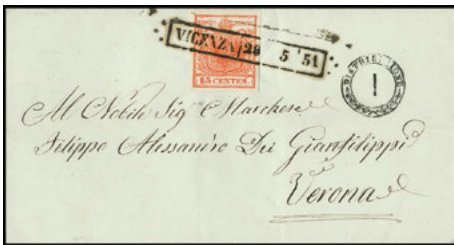 VICENZA 29 5 '51
15 CENTES.
DISTRIBUZIONE
I
Al Nobile Sig.r Marchese
Filippo Alessandro Dei Gianfilippi
Verona